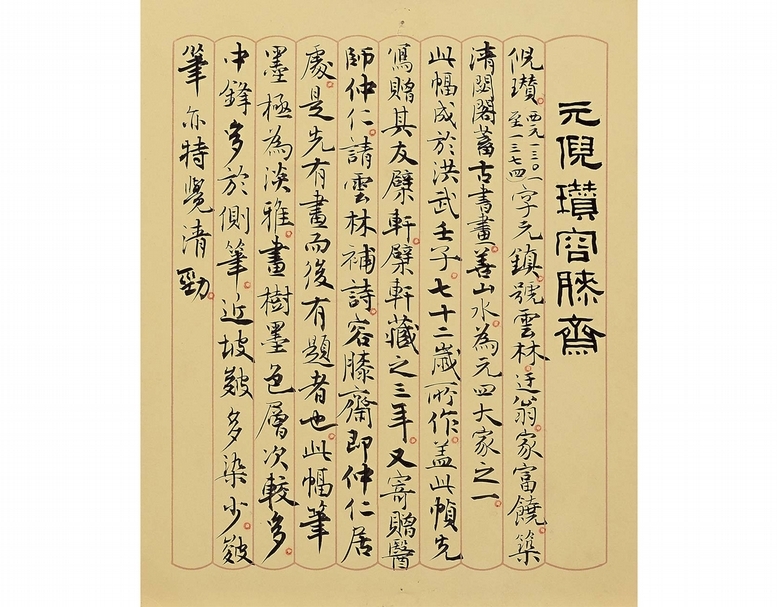 元倪瓚容膝齋
倪瓚。西元一三〇一至一三七四字元鎮。號雲林。迂翁。家富饒。築
清閟閣蓄古書畫。善山水。為元四大家之一。
此幅成於洪武壬子。七十二歲所作。蓋此幀先
寫贈其友檗軒。檗軒藏之三年。又寄贈醫
師仲仁。請雲林補詩。容膝齋即仲仁居
處。是先有畫而後有題者也。此幅筆
墨極為淡雅。畫樹墨色層次較多。
中鋒多於側筆。近坡皴多染少。皴
筆亦特覺清勁。